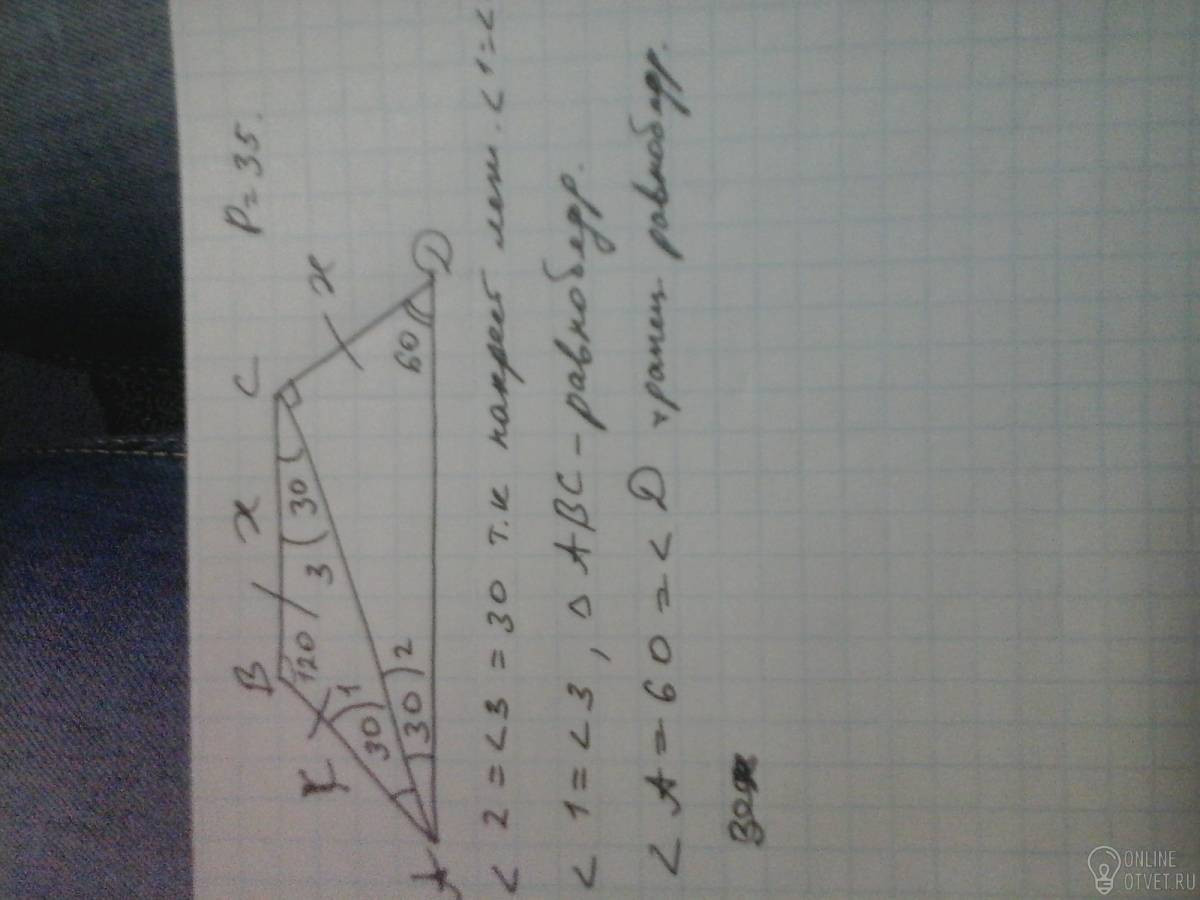 P = 35.
B x C
x 120 3 30 x
30 1
30 2 60
A D
< 2 = < 3 = 30 т.к накрест леж. < 1 = <
< 1 = < 3, Δ ABC - равнобедр.
< A = 60 = < D трапец равнобедр.
ONLINE
OTVET.RU